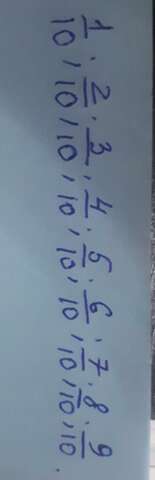 1/10; 2/10; 3/10; 4/10; 5/10; 6/10; 7/10; 8/10; 9/10.